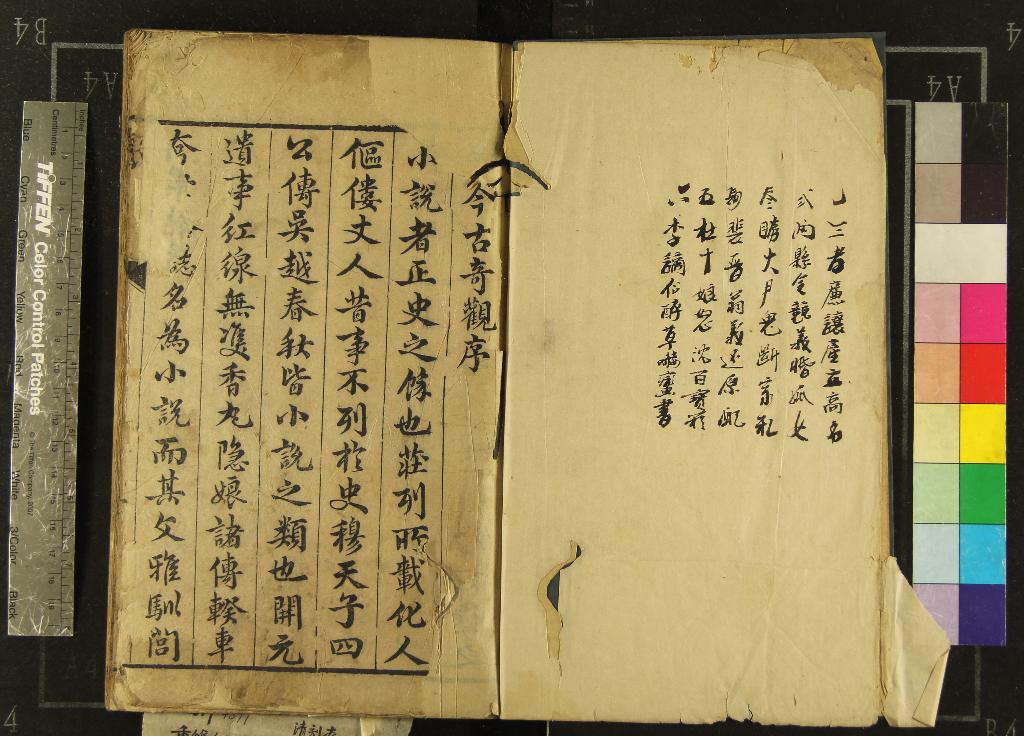 一 三孝廉讓產立高名
弍 两縣令競義婚孤女
叁 滕大尹鬼斷家私
裴晋公義还原配
五 杜十娘怒沉百寳箱
六 李謫仙醉草嚇蠻書
今古奇觀序
小說者正史之餘也莊列所載化人
傴僂丈人昔事不列於史穆天子四
公傳吳越春秋皆小說之類也開元
遺事紅線無雙香丸隐娘諸傳輶車
夸志名為小說而其文雅馴閭
TIFFEN Color Control Patches
Centimetres
Inches
Blue
Cyan
Green
Yellow
Red
Magenta
White
3/Color
Black
B4
A4
A4
4
4